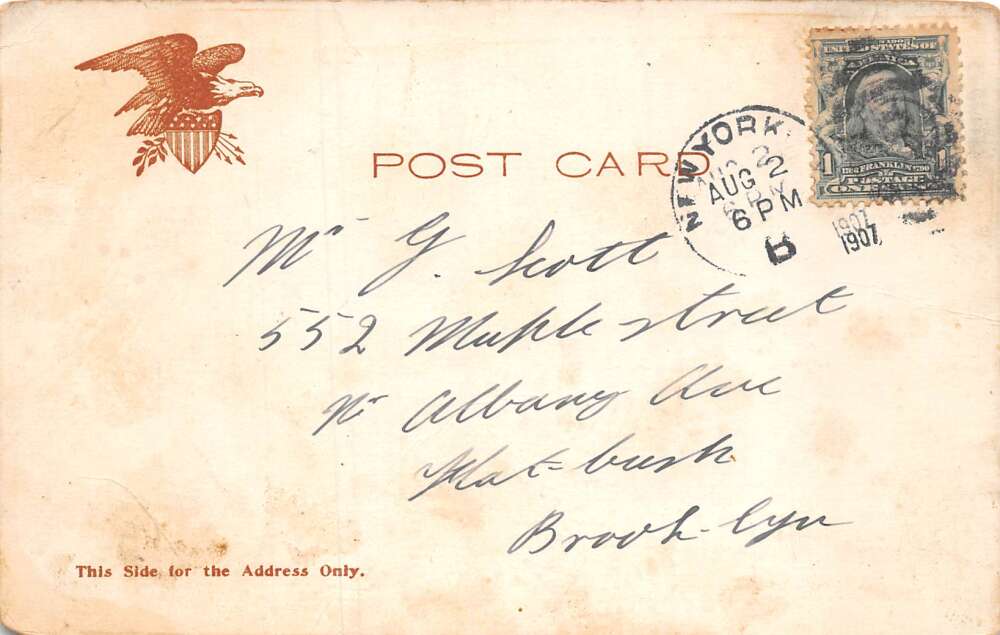 POST CARD
NEW YORK
AUG 2
6 PM
B
1907
1907
UNITED STATES OF
AMERICA
1 1
FRANKLIN
POSTAGE
Mr G. Scott
552 Maple street
Nr Albany Ave
Flat-bush
Brook-lyn
This Side for the Address Only.